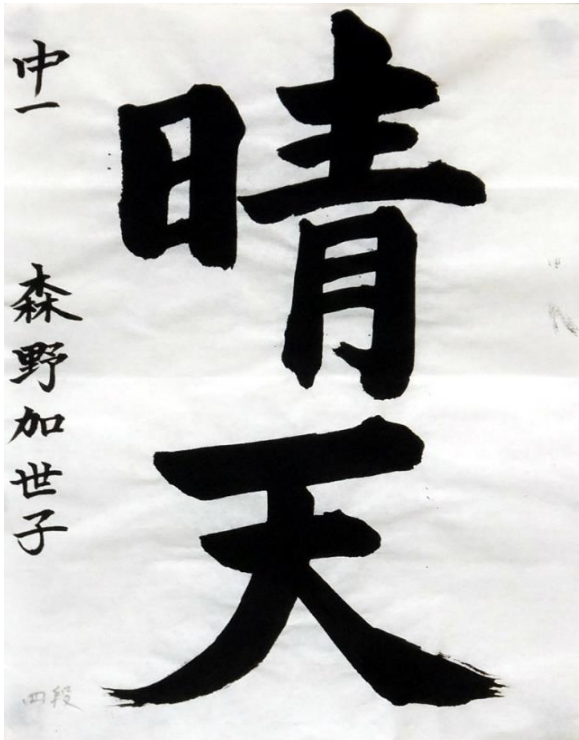 晴天
中一 森野加世子
四段